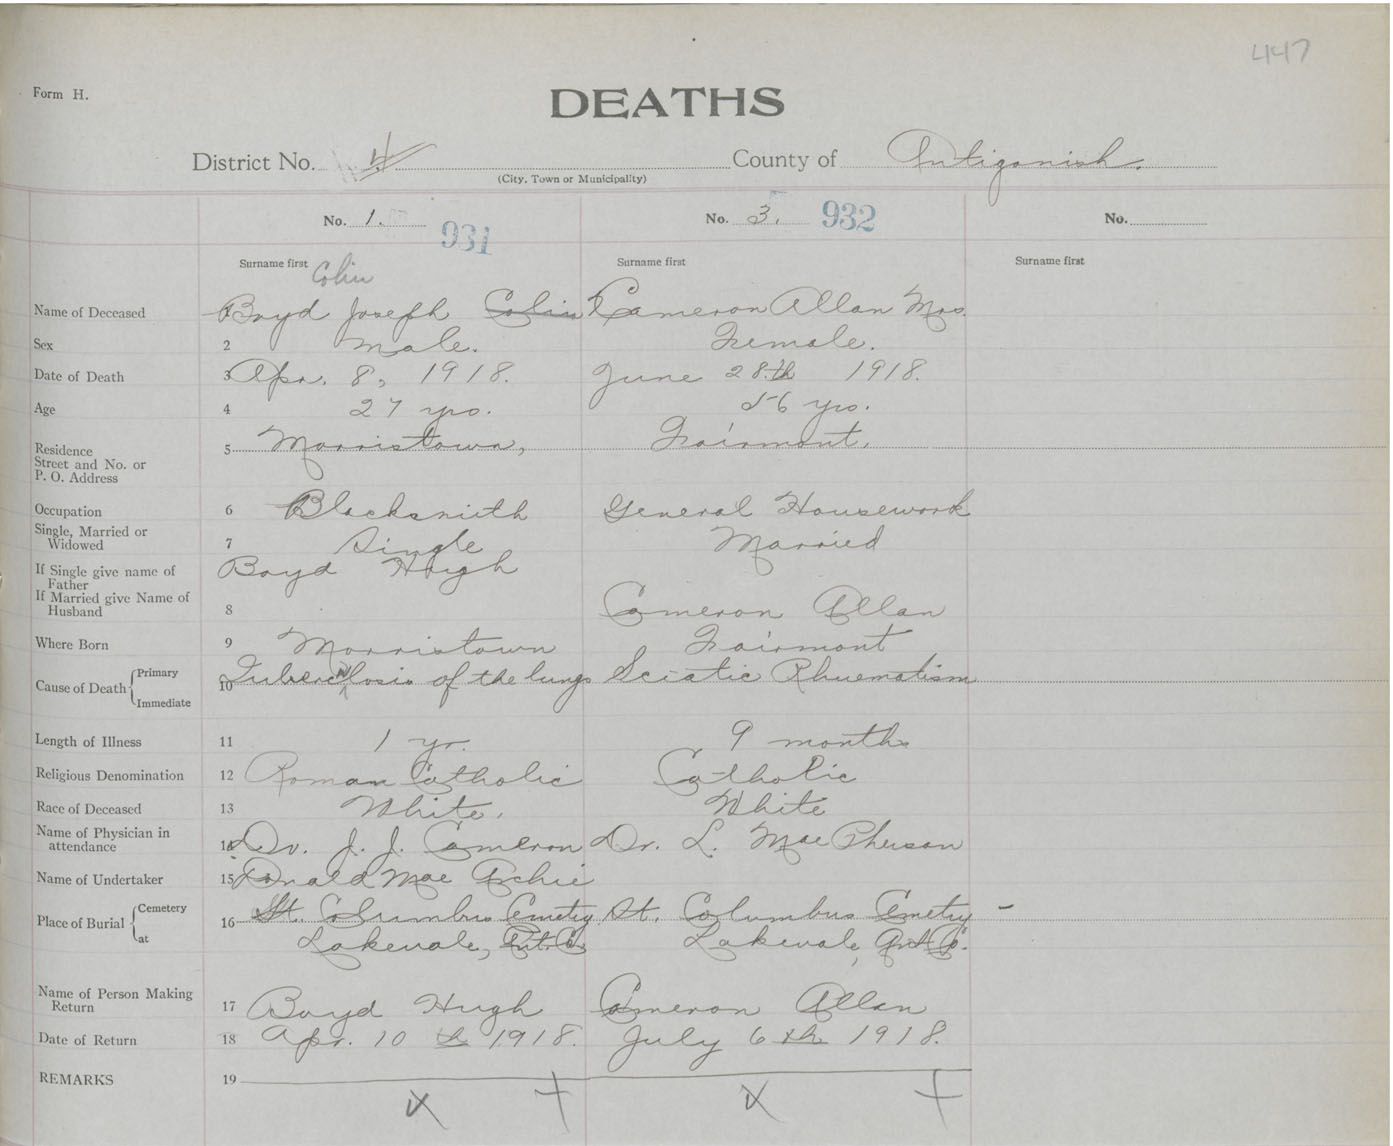 447
Form H.
DEATHS
District No. 4 County of Antigonish.
(City, Town or Municipality)
No. 1. 931 No. 3. 932 No.
Surname first Surname first Surname first
Colin
Name of Deceased 1 Boyd Joseph Colin Cameron Allan Mrs.
Sex 2 Male. Female.
Date of Death 3 Apr. 8, 1918. June 28th 1918.
Age 4 27 yrs. 56 yrs.
Residence 5 Morristown, Fairmont.
Street and No. or
P. O. Address
Occupation 6 Blacksmith General Housework
Single, Married or
Widowed 7 Single Married
If Single give name of Boyd Hugh
Father
If Married give Name of
Husband 8 Cameron Allan
Where Born 9 Morristown Fairmont
Cause of Death Primary 10 Tuberculosis of the lungs Sciatic Rhuematism
Immediate
Length of Illness 11 1 yr. 9 months
Religious Denomination 12 Roman Catholic Catholic
Race of Deceased 13 White. White
Name of Physician in
attendance 14 Dr. J. J. Cameron Dr. L. MacPherson
Name of Undertaker 15 Donald Mac Archie
Place of Burial Cemetery 16 St. Columbus Cemetry St. Columbus Cemetry
at Lakevale, Ant. Co. Lakevale, Ant Co.
Name of Person Making
Return 17 Boyd Hugh Cameron Allan
Date of Return 18 Apr. 10th 1918. July 6th 1918.
REMARKS 19
x + x +